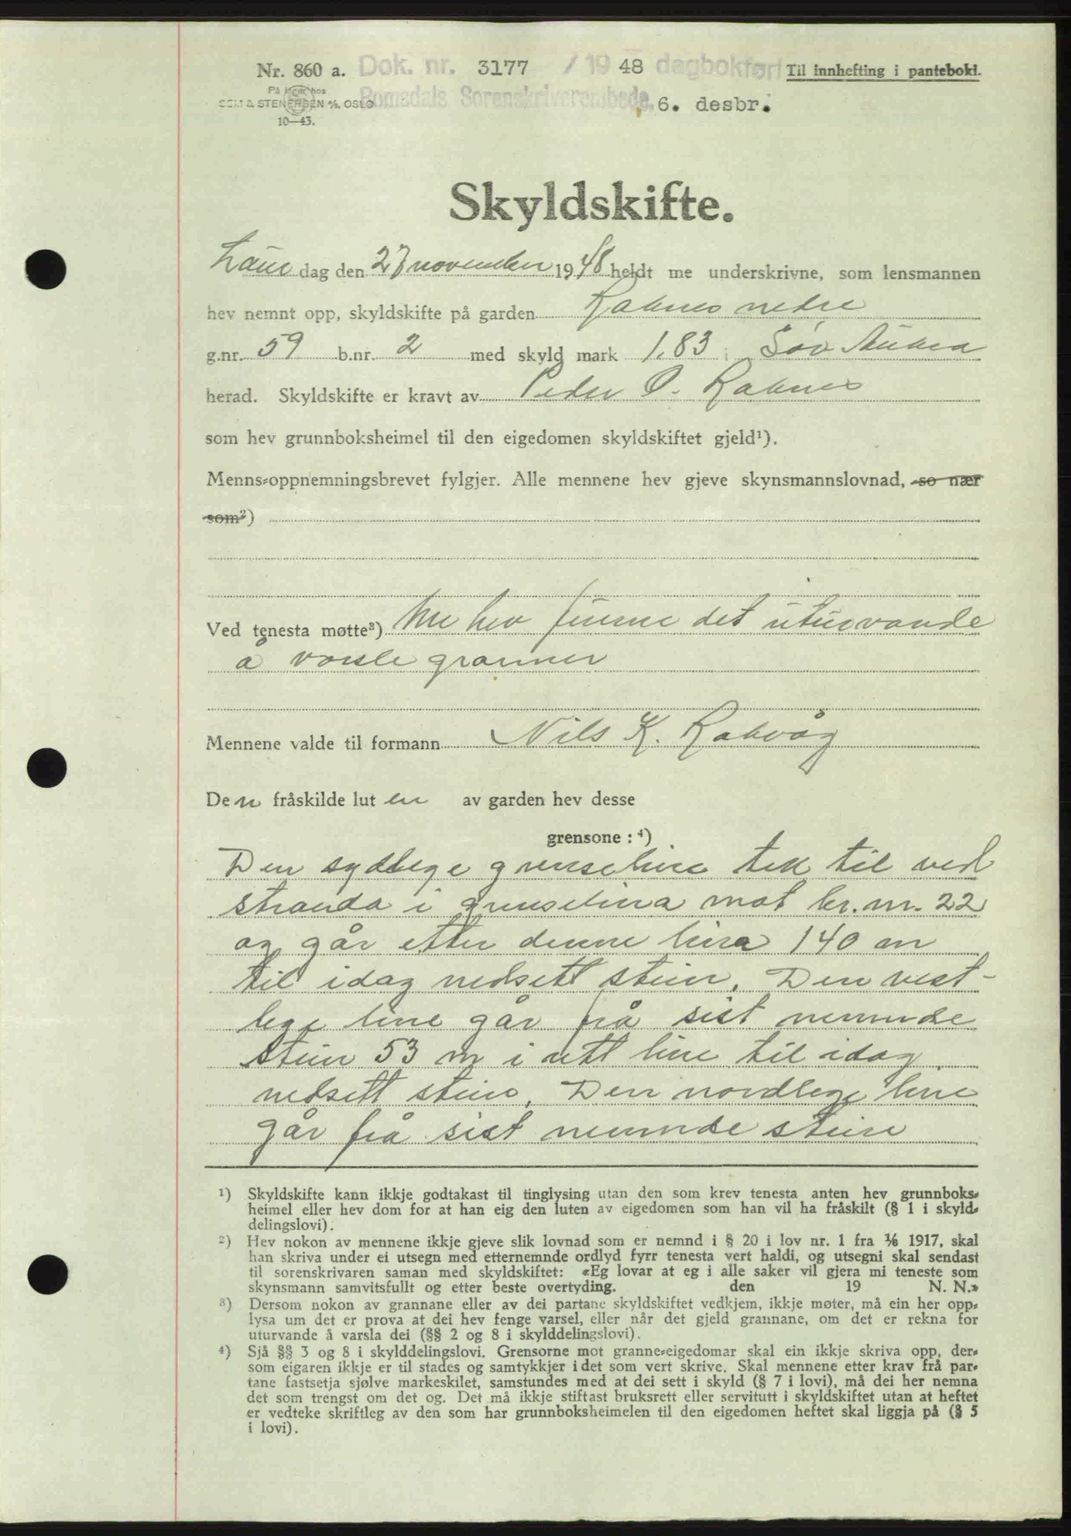 Nr. 860 a. Dok. nr. 3177 / 19 48 dagbokført Til innhefting i pantebok.
På lager hos
SEM & STENERSEN A/S, OSLO Romsdals Sorenskriverembede. 6. desbr.
10—43.
Skyldskifte.
Laur dag den 27 november 1948 heldt me underskrivne, som lensmannen
hev nemnt opp, skyldskifte på garden Raknes nedre
g.nr. 59 b.nr. 2 med skyld mark 1.83 i Sør Aukra
herad. Skyldskifte er kravt av Peder O. Raknes
som hev grunnboksheimel til den eigedomen skyldskiftet gjeld¹).
Menns-oppnemningsbrevet fylgjer. Alle mennene hev gjeve skynsmannslovnad, so nær
som²)
Ved tenesta møtte³) Me hev funne det uturvande
å varsle grannar
Mennene valde til formann Nils K. Rakvåg
Den fråskilde lut en av garden hev desse
grensone : ⁴)
Den sydlege grenseline tek til ved
stranda i grenselina mot br.nr. 22
og går etter denne lina 140 m
til idag nedsett stein. Den vest-
lege line går frå sist nemnde
stein 53 m i rett line til idag
nedsett stein. Den nordlege line
går frå sist nemnde stein
¹) Skyldskifte kann ikkje godtakast til tinglysing utan den som krev tenesta anten hev grunnboks-
heimel eller hev dom for at han eig den luten av eigedomen som han vil ha fråskilt (§ 1 i skyld-
delingslovi).
²) Hev nokon av mennene ikkje gjeve slik lovnad som er nemnd i § 20 i lov nr. 1 fra ⅙ 1917, skal
han skriva under ei utsegn med etternemnde ordlyd fyrr tenesta vert haldi, og utsegni skal sendast
til sorenskrivaren saman med skyldskiftet: «Eg lovar at eg i alle saker vil gjera mi teneste som
skynsmann samvitsfullt og etter beste overtyding. den 19 N. N.»
³) Dersom nokon av grannane eller av dei partane skyldskiftet vedkjem, ikkje møter, må ein her opp-
lysa um det er prova at dei hev fenge varsel, eller når det gjeld grannane, om det er rekna for
uturvande å varsla dei (§§ 2 og 8 i skylddelingslovi).
⁴) Sjå §§ 3 og 8 i skylddelingslovi. Grensorne mot granne-eigedomar skal ein ikkje skriva opp, der-
som eigaren ikkje er til stades og samtykkjer i det som vert skrive. Skal mennene etter krav frå par-
tane fastsetja sjølve markeskilet, samstundes med at dei sett i skyld (§ 7 i lovi), må dei her nemna
det som trengst om det og. Det må ikkje stiftast bruksrett eller servitutt i skyldskiftet utan at heftet
er vedteke skriftleg av den som har grunnboksheimelen til den eigedomen heftet skal liggja på (§ 5
i lovi).